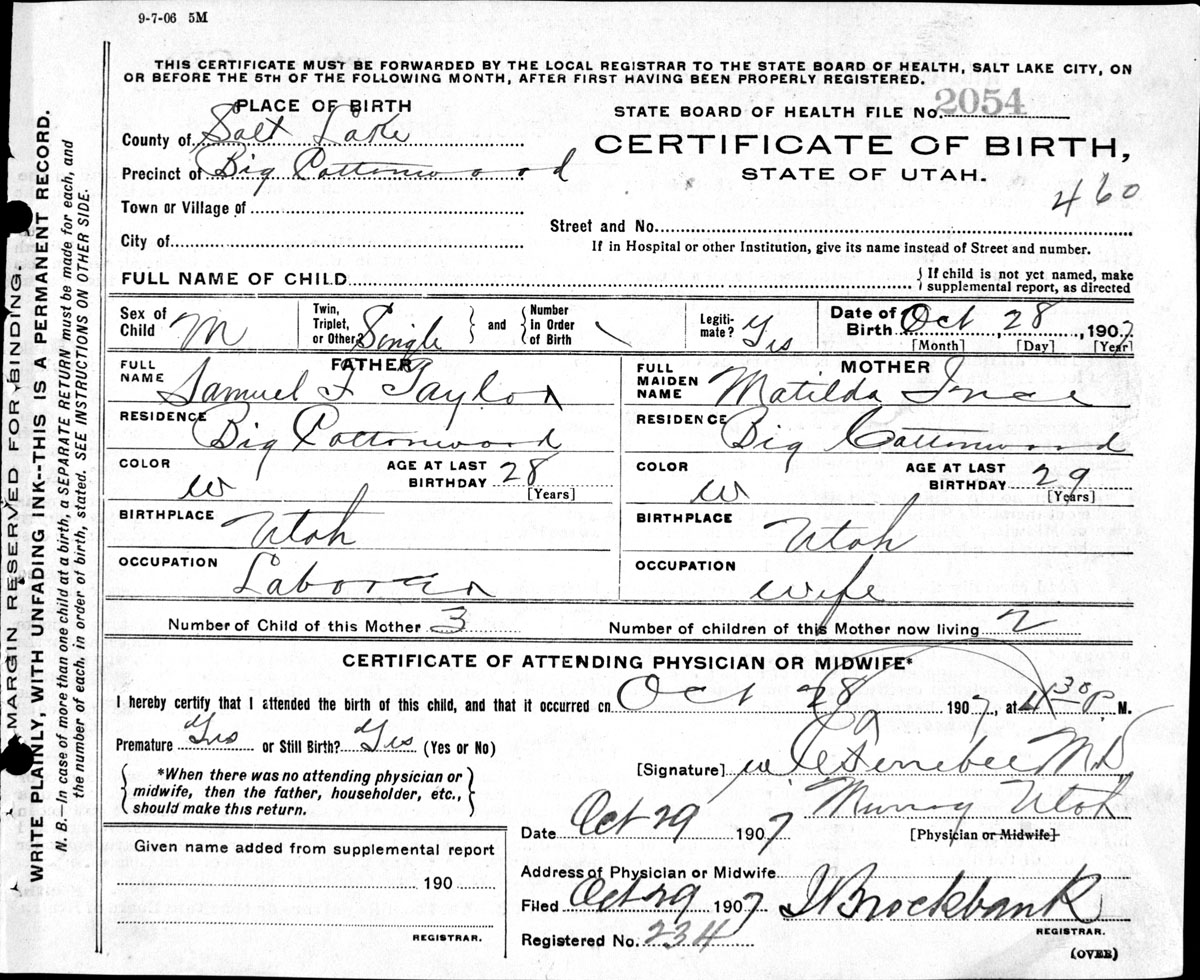 9-7-06 5M
THIS CERTIFICATE MUST BE FORWARDED BY THE LOCAL REGISTRAR TO THE STATE BOARD OF HEALTH, SALT LAKE CITY, ON
OR BEFORE THE 5TH OF THE FOLLOWING MONTH, AFTER FIRST HAVING BEEN PROPERLY REGISTERED.
PLACE OF BIRTH
STATE BOARD OF HEALTH FILE No. 2054
County of Salt Lake
CERTIFICATE OF BIRTH,
Precinct of Big Cottonwood
STATE OF UTAH.
460
Town or Village of
Street and No.
City of
If in Hospital or other Institution, give its name instead of Street and number.
FULL NAME OF CHILD
If child is not yet named, make
supplemental report, as directed
Sex of Child M
Twin, Triplet, or Other? Single
and
Number in Order of Birth
Legiti-mate? Yes
Date of Birth Oct 28, 1907
[Month] [Day] [Year]
FATHER
FULL NAME Samuel F Taylor
MOTHER
FULL MAIDEN NAME Matilda Ince
RESIDENCE Big Cottonwood
RESIDENCE Big Cottonwood
COLOR w
AGE AT LAST BIRTHDAY 28
[Years]
COLOR w
AGE AT LAST BIRTHDAY 29
[Years]
BIRTHPLACE Utah
BIRTHPLACE Utah
OCCUPATION Laborer
OCCUPATION wife
Number of Child of this Mother 3
Number of children of this Mother now living 2
CERTIFICATE OF ATTENDING PHYSICIAN OR MIDWIFE*
I hereby certify that I attended the birth of this child, and that it occurred on Oct 28 1907, at 4 30 P. M.
Premature Yes or Still Birth? Yes (Yes or No)
[Signature] M.D
*When there was no attending physician or
midwife, then the father, householder, etc.,
should make this return.
Murray Utah
Date Oct 29 1907
[Physician or Midwife]
Given name added from supplemental report
190
REGISTRAR.
Address of Physician or Midwife
Filed Oct 29 1907 Brockbank
REGISTRAR.
Registered No. 234
(OVER)
MARGIN RESERVED FOR BINDING.
WRITE PLAINLY, WITH UNFADING INK--THIS IS A PERMANENT RECORD.
N. B.—In case of more than one child at a birth, a SEPARATE RETURN must be made for each, and
the number of each, in order of birth, stated. SEE INSTRUCTIONS ON OTHER SIDE.